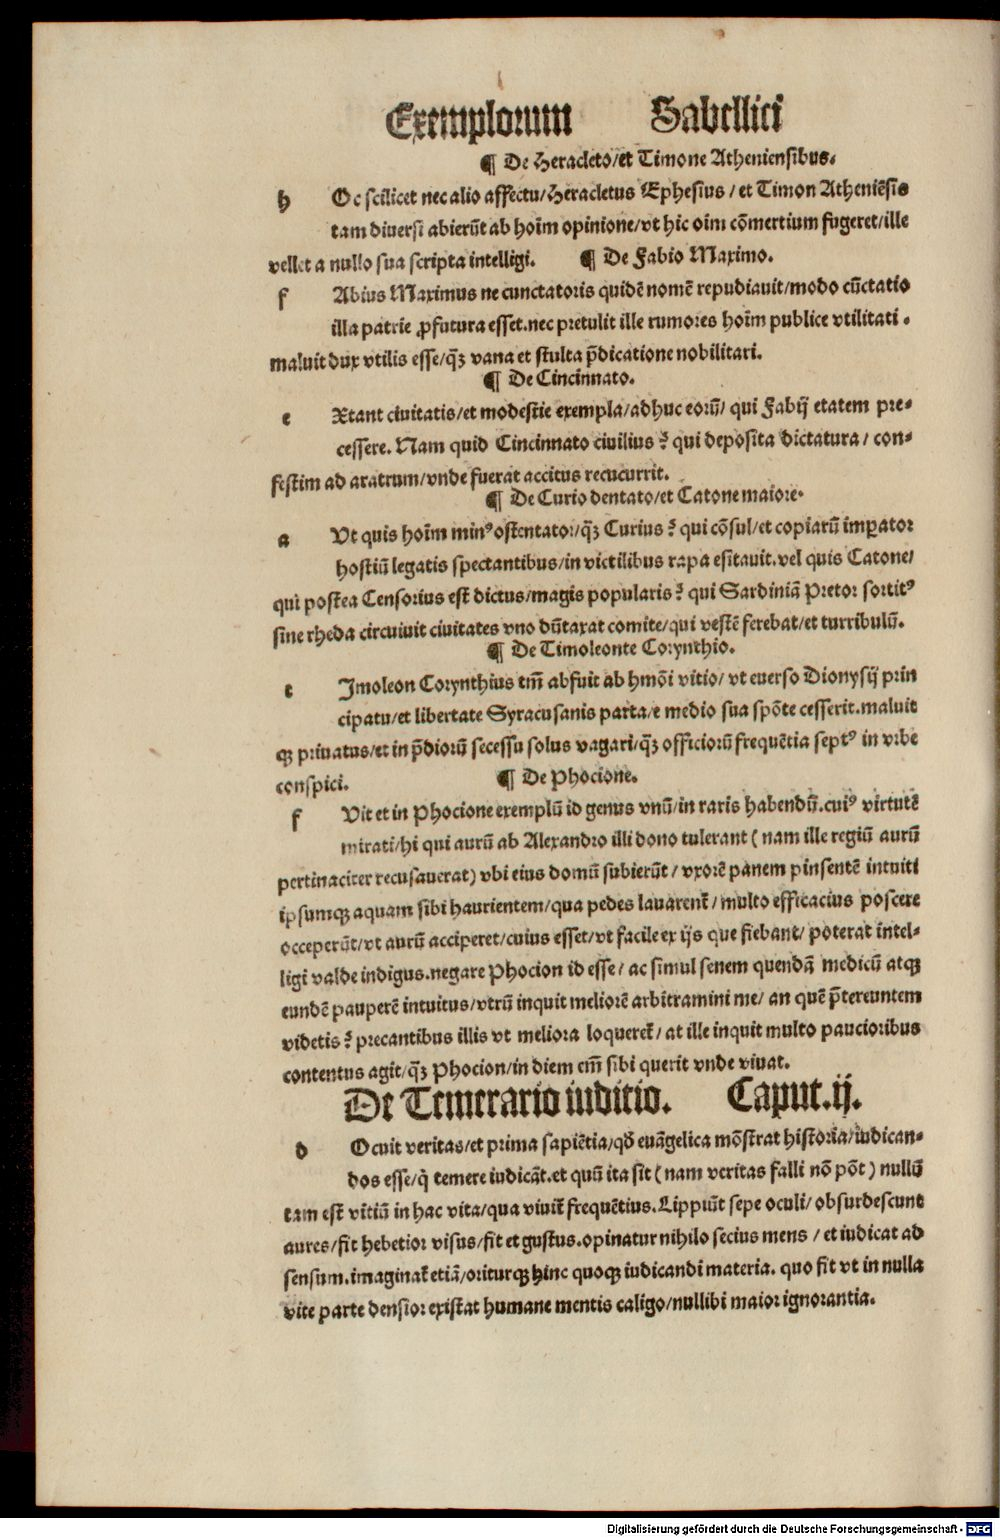 Exemplorum Sabellici
¶ De Heracleto/et Timone Atheniensibus.
h Oc scilicet nec alio affectu/Heracletus Ephesius/et Timon Atheniēsis
tam diuersi abierūt ab hoīm opinione/vt hic oīm cōmertium fugeret/ille
vellet a nullo sua scripta intelligi. ¶ De Fabio Maximo.
f Abius Maximus ne cunctatoris quidē nomē repudiauit/modo cūctatio
illa patrie ꝓfutura esset.nec pretulit ille rumores hoīm publice vtilitati.
maluit dux vtilis esse/q̄ꝫ vana et stulta p̄dicatione nobilitari.
¶ De Cincinnato.
e Xtant ciuitatis/et modestie exempla/adhuc eorū/qui Fabij etatem pre-
cessere. Nam quid Cincinnato ciuilius? qui deposita dictatura/con-
festim ad aratrum/vnde fuerat accitus recucurrit.
¶ De Curio dentato/et Catone maiore.
a Vt quis hoīm minꝰ ostentator/q̄ꝫ Curius? qui cōsul/et copiarū imꝑator
hostiū legatis spectantibus/in victilibus rapa esitauit.vel quis Catone/
qui postea Censorius est dictus/magis popularis? qui Sardiniā Pretor sortitꝰ
sine rheda circuiuit ciuitates vno dūtaxat comite/qui vestē ferebat/et turribulū.
¶ De Timoleonte Corynthio.
t Imoleon Corynthius tm̄ abfuit ab hmōi vitio/vt euerso Dionysij prin
cipatu/et libertate Syracusanis parta/e medio sua spōte cesserit.maluit
qꝫ priuatus/et in p̄diorū secessu solus vagari/q̄ꝫ officiorū frequētia septꝰ in vrbe
conspici. ¶ De Phocione.
f Vit et in Phocione exemplū id genus vnū/in raris habendū.cuiꝰ virtutē
mirati/hi qui aurū ab Alexandro illi dono tulerant (nam ille regiū aurū
pertinaciter recusauerat) vbi eius domū subierūt/vxorē panem pinsentē intuiti
ipsumqꝫ aquam sibi haurientem/qua pedes lauarenť/multo efficacius poscere
occeperūt/vt aurū acciperet/cuius esset/vt facile ex ijs que fiebant/poterat intel-
ligi valde indigus.negare Phocion id esse/ac simul senem quendā medicū atqꝫ
eundē pauperē intuitus/vtrū inquit meliorē arbitramini me/an quē p̄tereuntem
videtis? precantibus illis vt meliora loquereť/at ille inquit multo paucioribus
contentus agit/q̄ꝫ Phocion/in diem em̄ sibi querit vnde viuat.
De Temerario iuditio. Caput.ij.
d Ocuit veritas/et prima sapiētia/qđ euāgelica mōstrat historia/iudican-
dos esse/q̇ temere iudicāt.et quū ita sit (nam veritas falli nō pōt) nullū
tam est vitiū in hac vita/qua viuiť frequētius.Lippiūt sepe oculi/obsurdescunt
aures/fit hebetior visus/fit et gustus.opinatur nihilo secius mens/et iudicat ad
sensum.imaginať etiā/oriturqꝫ hinc quoqꝫ iudicandi materia. quo fit vt in nulla
vite parte densior existat humane mentis caligo/nullibi maior ignorantia.
Digitalisierung gefördert durch die Deutsche Forschungsgemeinschaft - DFG